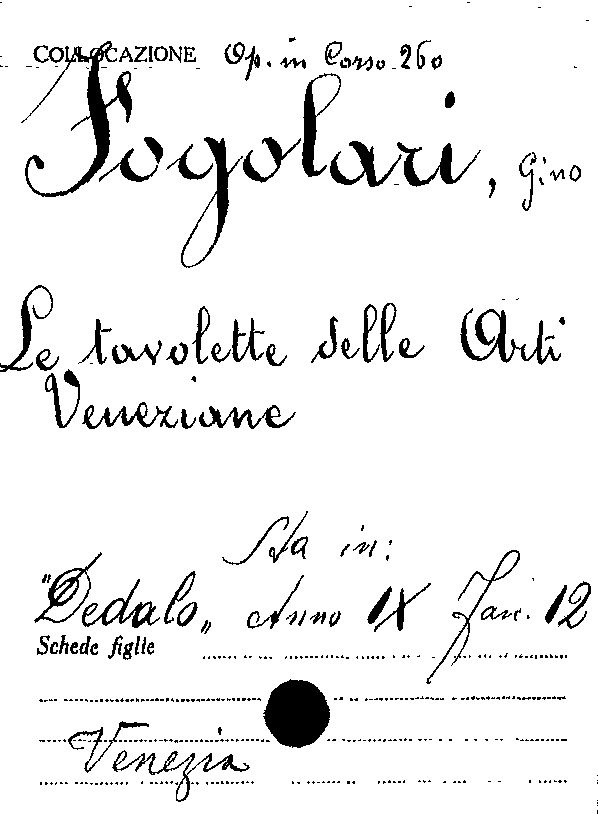 COLLOCAZIONE Op. in Corso 260
Fogolari, Gino
Le tavolette delle Arti
Veneziane
Sta in:
"Dedalo„ Anno IX Fasc. 12
Schede figlie
Venezia